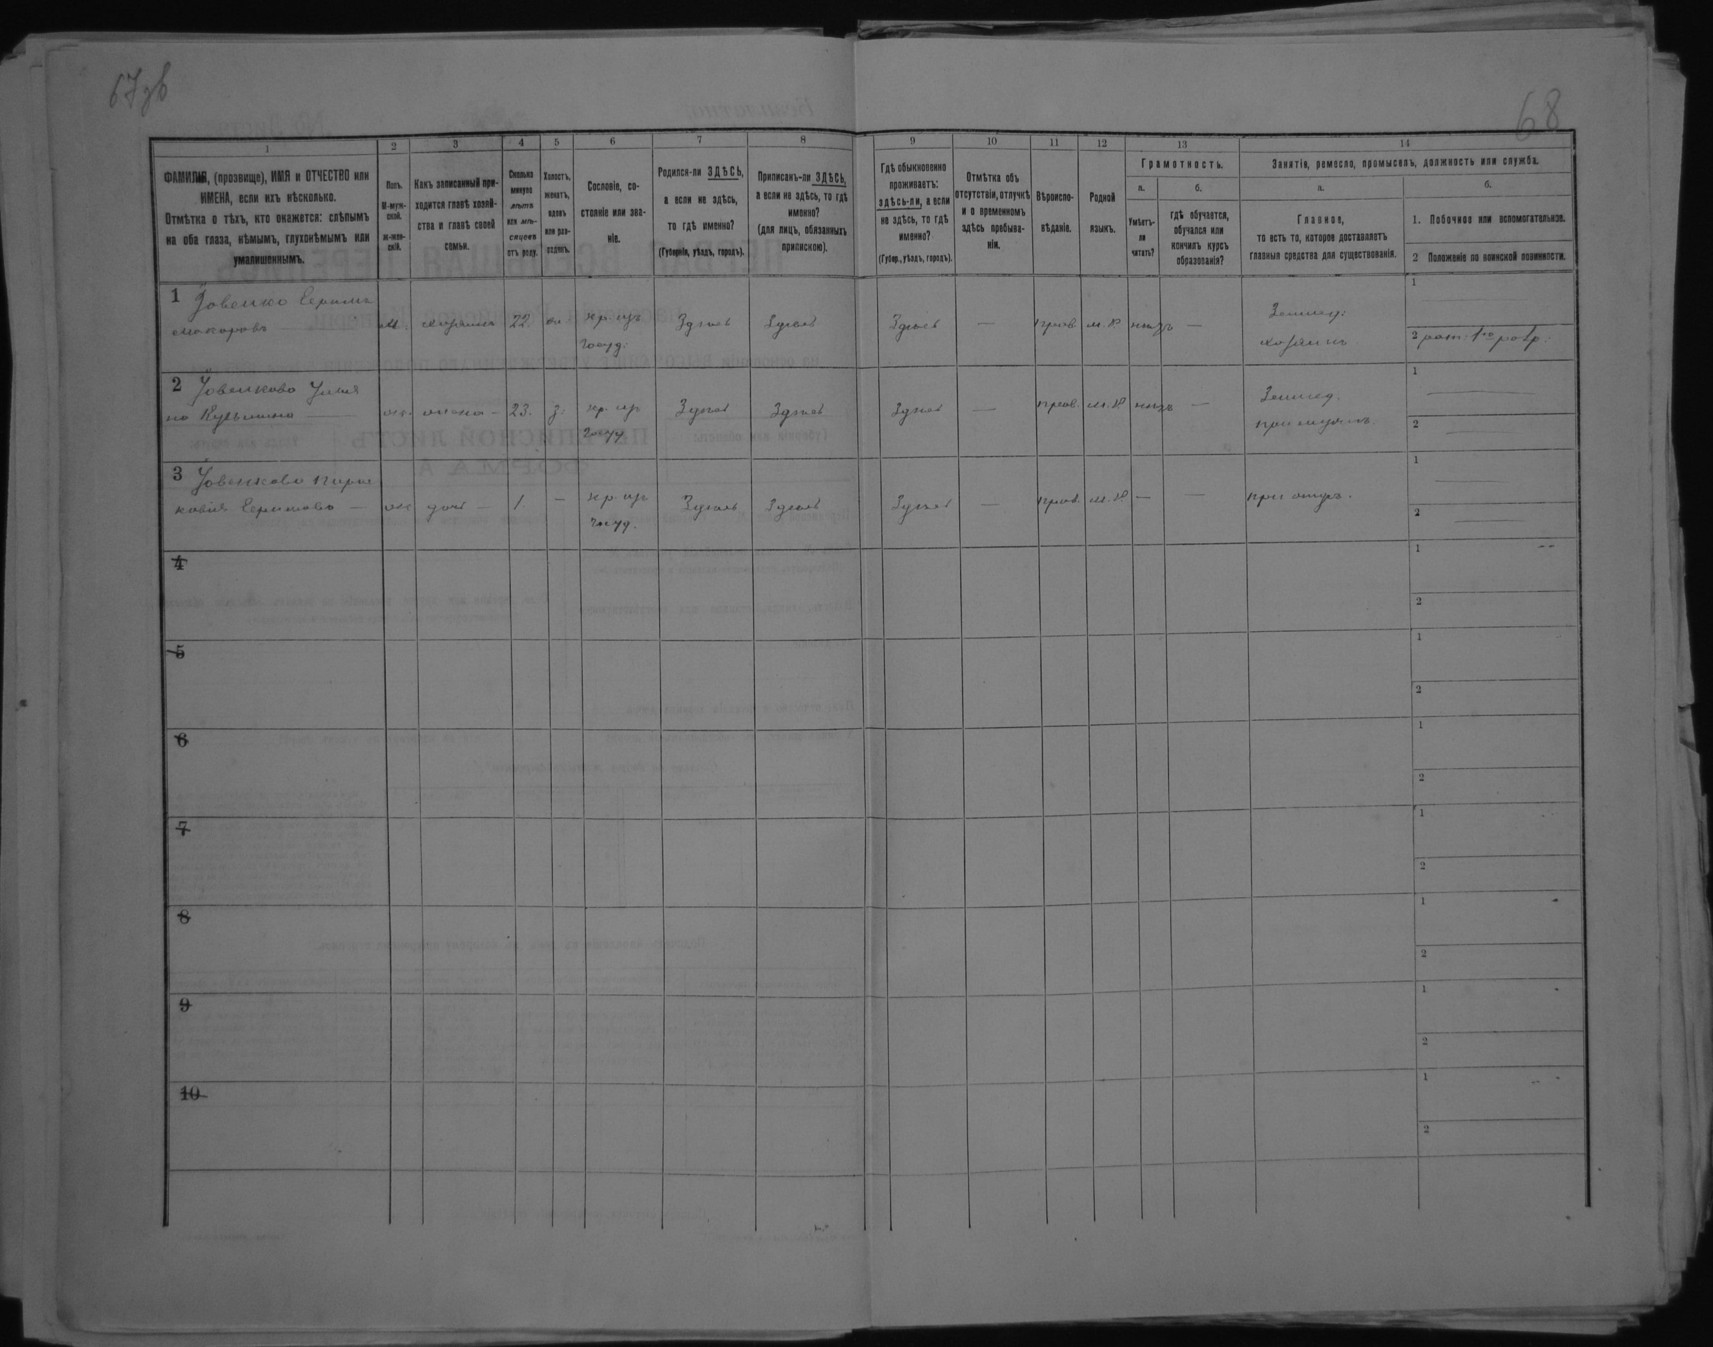 67зв
68
1
2
3
4
5
6
7
8
9
10
11
12
13
14
ФАМИЛІЯ, (прозвище), ИМЯ и ОТЧЕСТВО или
ИМЕНА, если ихъ нѣсколько.
Отмѣтка о тѣхъ, кто окажется: слѣпымъ
на оба глаза, нѣмымъ, глухонѣмымъ или
умалишеннымъ.
Полъ.
М-муж-
ской.
ж-жен-
скій.
Какъ записанный при-
ходится главѣ хозяй-
ства и главѣ своей
семьи.
Сколько
минуло
лѣтъ
или мѣ-
сяцевъ
отъ роду.
Холостъ,
женатъ,
вдовъ
или раз-
веденъ.
Сословіе, со-
стояніе или зва-
ніе.
Родился-ли ЗДѢСЬ,
а если не здѣсь,
то гдѣ именно?
(Губернія, уѣздъ, городъ).
Приписанъ-ли ЗДѢСЬ,
а если не здѣсь, то гдѣ
именно?
(для лицъ, обязанныхъ
припискою).
Гдѣ обыкновенно
проживаетъ:
здѣсь-ли, а если
не здѣсь, то гдѣ
именно?
(Губер., уѣздъ, городъ).
Отмѣтка объ
отсутствіи, отлучкѣ
и о временномъ
здѣсь пребыва-
ніи.
Вѣроиспо-
вѣданіе.
Родной
языкъ.
Грамотность.
а.
Умѣетъ-
ли
читать?
б.
гдѣ обучается,
обучался или
кончилъ курсъ
образованія?
Занятіе, ремесло, промыселъ, должность или служба.
а.
Главное,
то есть то, которое доставляетъ
главныя средства для существованія.
б.
1. Побочное или вспомогательное.
2 Положеніе по воинской повинности.
1 Ювенко Ефимъ
Макаровъ
м. хозяинъ 22. жен. кр. изъ
госуд.
Здѣсь Здѣсь Здѣсь — прав. м. р нѣтъ —
Землед:
хозяинъ
1
2 рат. 1го разр.
2 Ювенкова Улья
на Кузьмина —
же. жена — 23. з. кр. из
госуд
Здѣсь Здѣсь Здѣсь — прав. м. р нѣтъ —
Землед.
при мужѣ
1
2
3 Ювенкова Парас
ковія Ефимова —
же дочь — 1. — кр. из
госуд.
Здѣсь Здѣсь Здѣсь — прав. м. р — — при отцѣ.
1
2
4
1
2
5
1
2
6
1
2
7
1
2
8
1
2
9
1
2
10
1
2